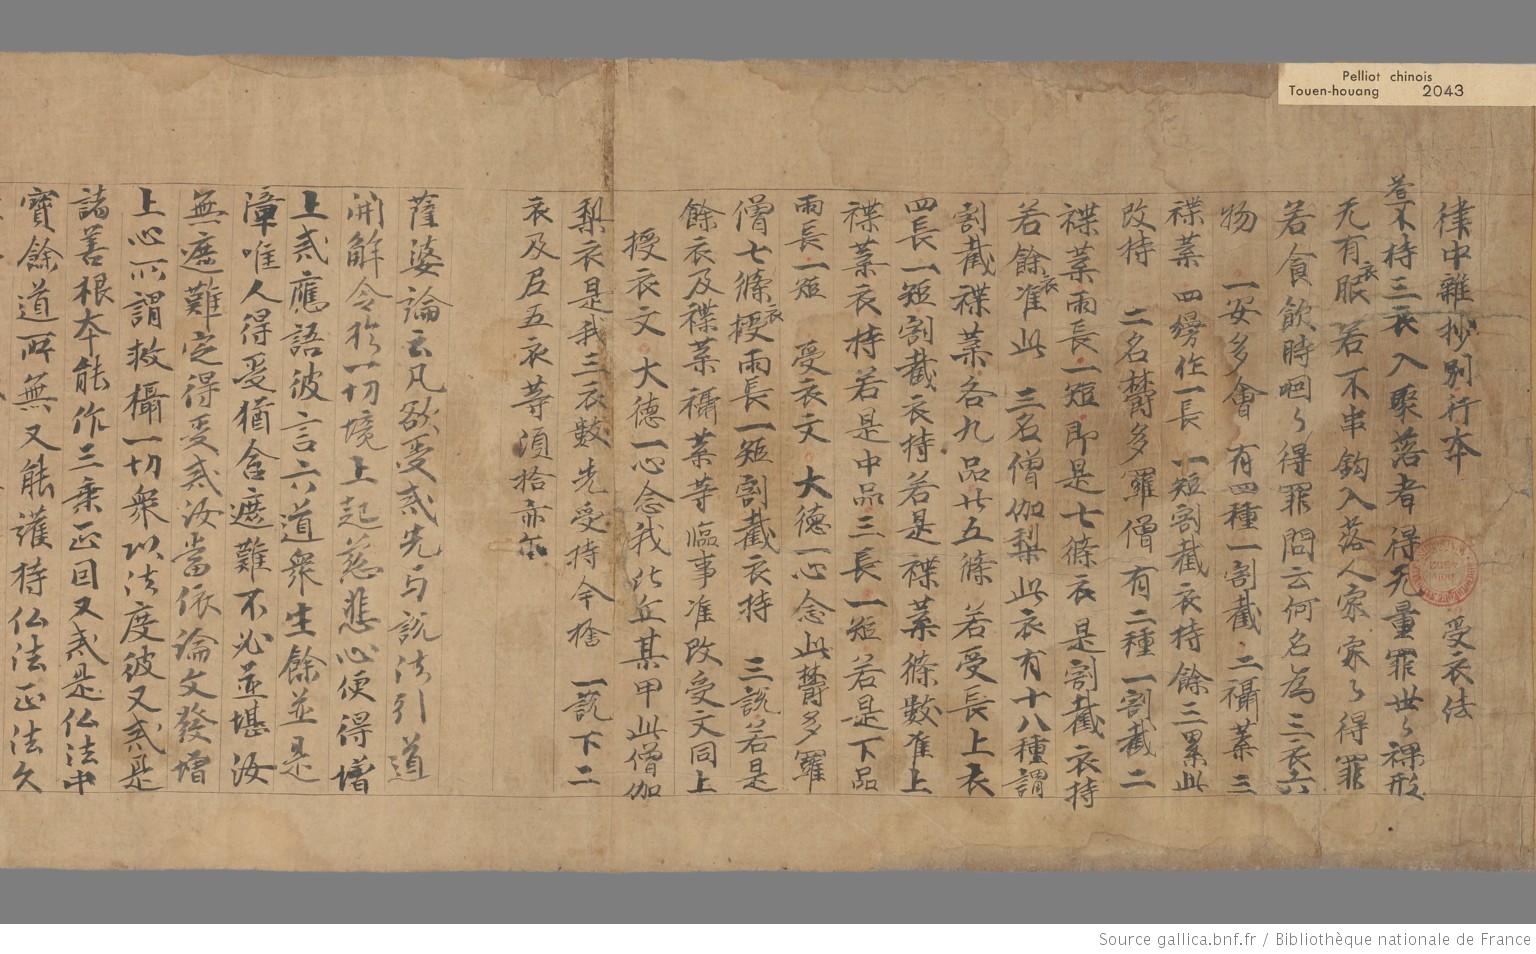 Pelliot chinois
Touen-houang 2043
律中雜抄別行本 受衣法
若不持三衣入聚落者得无量罪世々裸形
无有眼衣若不串鈎入落人家家々得罪
若食飲時咽々得罪問云何名為三衣六
物 一安多會有四種一割截二襵葉三
褋葉四㙸作一長一短割截衣持餘三累此
改持 二名欝多羅僧有二種一割截二
褋葉兩長一短即是七條衣是割截衣持
若餘衣准此 三名僧伽梨此衣有十八種謂
割截褋葉各九品廿五條若受長上衣
四長一短割截衣持若是褋葉條數准上
褋葉衣持若是中品三長一短若是下品
兩長一短 受衣文 大德一心念此欝多羅
僧七條衣授兩長一短割截衣持 三說若是
餘衣及褋葉襵葉等臨事准改受文同上
授衣文 大德一心念我比丘某甲此僧伽
梨衣是我三衣數先受持今捨 一說下二
衣及尼五衣等須捨亦尒
薩婆論云凡欲受戒先与說法引道
開解令於一切境上起慈悲心便得增
上戒應語彼言六道衆生餘並是
障唯人得受猶含遮難不必並堪汝
無遮難定得受戒汝當依論文發增
上心所謂救攝一切衆以法度彼又戒是
諸善根本能作三乘正因又戒是仏法中
寶餘道所無又能護持仏法正法久